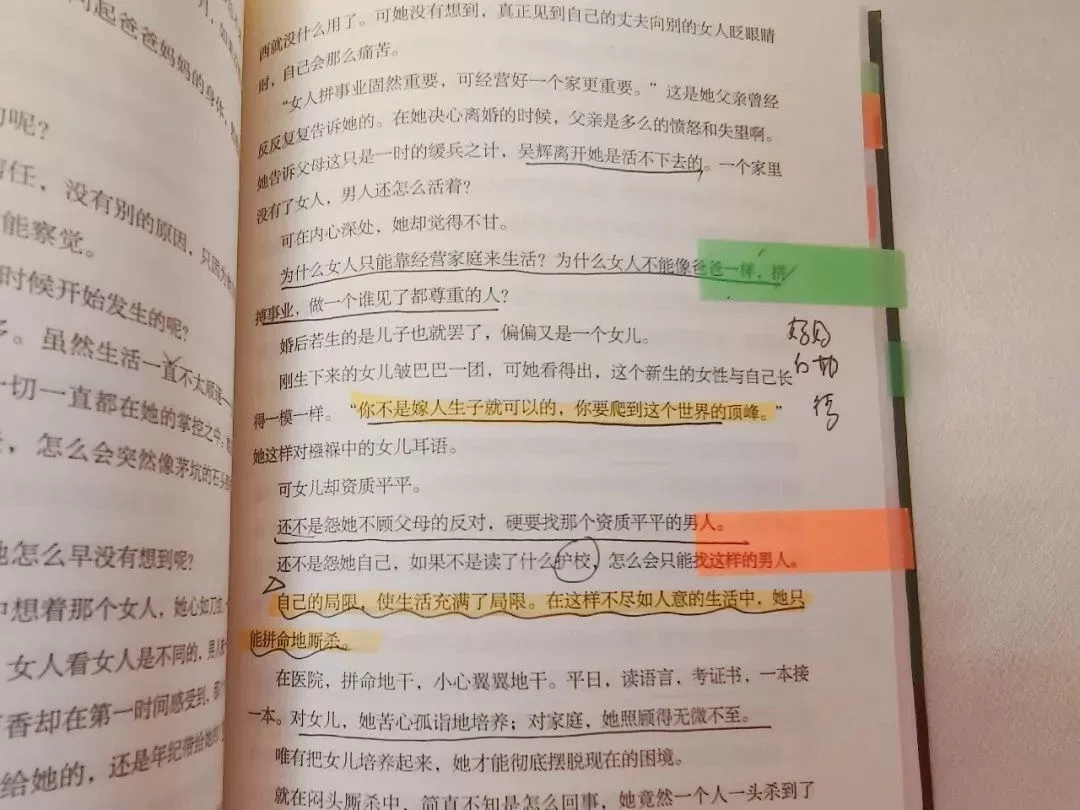 月，如果
问起爸爸妈妈的身体，
的呢？
信任，没有别的原因，只因为
能察觉。
时候开始发生的呢？
多。虽然生活一直不太顺遂
一切一直都在她的掌控之中，
，怎么会突然像茅坑的石头
她怎么早没有想到呢？
中想着那个女人，她心如刀
女人看女人是不同的，男人
香却在第一时间感受到，那
给她的，还是年纪带给她的
西就没什么用了。可她没有想到，真正见到自己的丈夫向别的女人眨眼睛
时，自己会那么痛苦。
“女人拼事业固然重要，可经营好一个家更重要。”这是她父亲曾经
反反复复告诉她的。在她决心离婚的时候，父亲是多么的愤怒和失望啊。
她告诉父母这只是一时的缓兵之计，吴辉离开她是活不下去的。一个家里
没有了女人，男人还怎么活着？
可在内心深处，她却觉得不甘。
为什么女人只能靠经营家庭来生活？为什么女人不能像爸爸一样，拼
搏事业，做一个谁见了都尊重的人？
婚后若生的是儿子也就罢了，偏偏又是一个女儿。
刚生下来的女儿皱巴巴一团，可她看得出，这个新生的女性与自己长
得一模一样。“你不是嫁人生子就可以的，你要爬到这个世界的顶峰。”
她这样对襁褓中的女儿耳语。
可女儿却资质平平。
还不是怨她不顾父母的反对，硬要找那个资质平平的男人。
还不是怨她自己，如果不是读了什么护校，怎么会只能找这样的男人。
自己的局限，使生活充满了局限。在这样不尽如人意的生活中，她只
能拼命地厮杀。
在医院，拼命地干，小心翼翼地干。平日，读语言，考证书，一本接
一本。对女儿，她苦心孤诣地培养；对家庭，她照顾得无微不至。
唯有把女儿培养起来，她才能彻底摆脱现在的困境。
就在闷头厮杀中，简直不知是怎么回事，她竟然一个人一头杀到了